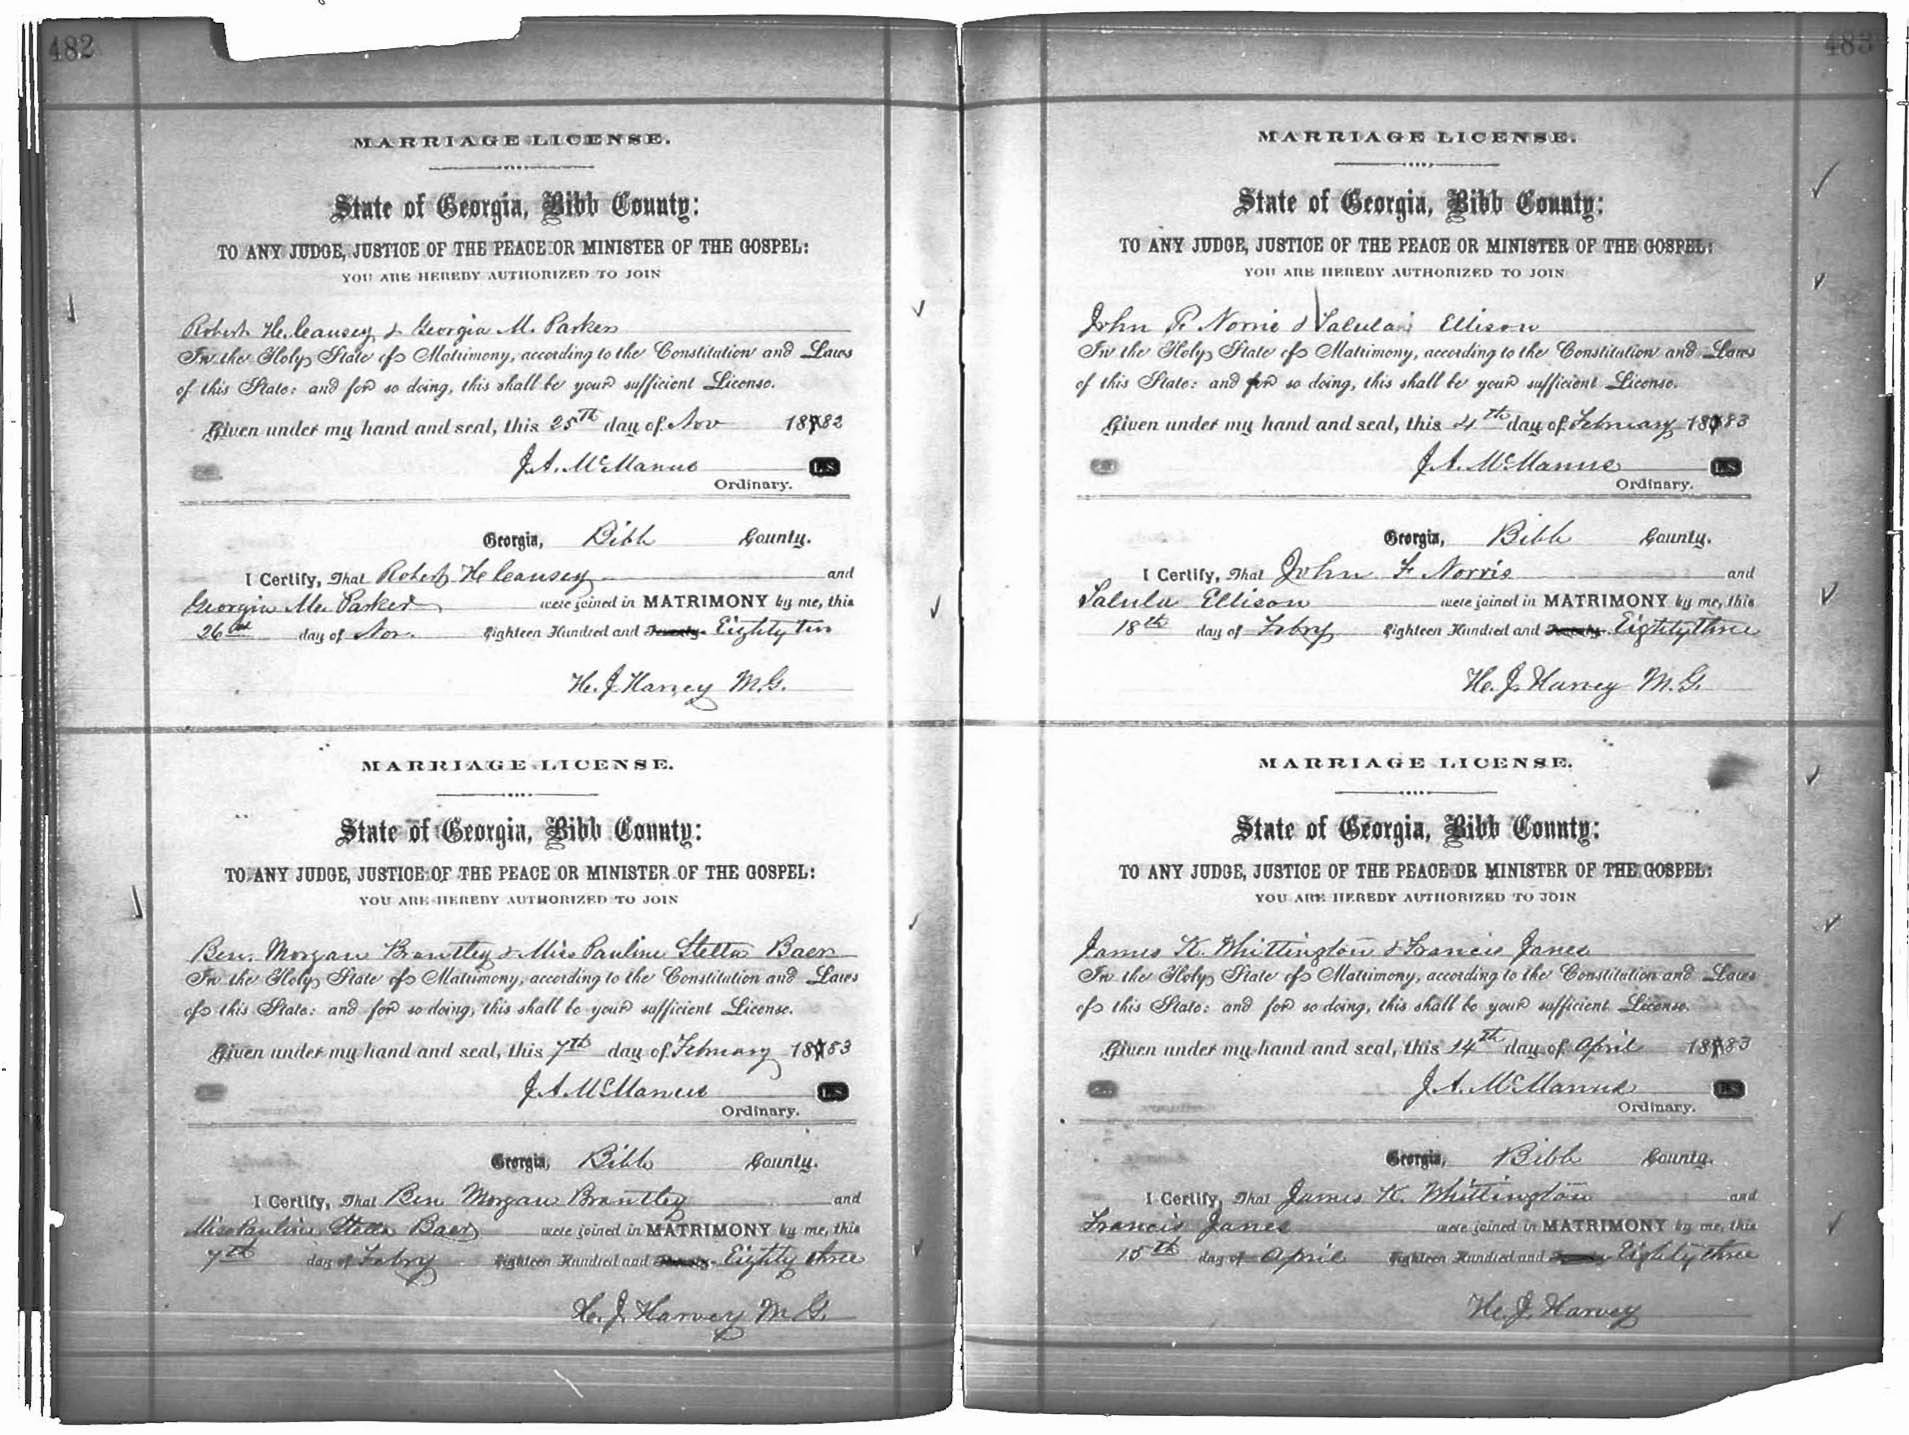 482
MARRIAGE LICENSE.
State of Georgia, Bibb County:
TO ANY JUDGE, JUSTICE OF THE PEACE OR MINISTER OF THE GOSPEL:
YOU ARE HEREBY AUTHORIZED TO JOIN
Robert H. Causey & Georgia M. Parker
In the Holy State of Matrimony, according to the Constitution and Laws
of this State: and for so doing, this shall be your sufficient License.
Given under my hand and seal, this 25th day of Nov 1882
J. A. McManus L.S.
Ordinary.
Georgia, Bibb County.
I Certify, That Robert H Causey and
Georgia M. Parker were joined in MATRIMONY by me, this
26th day of Nov. Eighteen Hundred and Eighty two
H. J. Harvey M.G.
MARRIAGE LICENSE.
State of Georgia, Bibb County:
TO ANY JUDGE, JUSTICE OF THE PEACE OR MINISTER OF THE GOSPEL:
YOU ARE HEREBY AUTHORIZED TO JOIN
Ben. Morgan Brantley & Miss Pauline Stella Baer
In the Holy State of Matrimony, according to the Constitution and Laws
of this State: and for so doing, this shall be your sufficient License.
Given under my hand and seal, this 7th day of February 1883
J. A. McManus L.S.
Ordinary.
Georgia, Bibb County.
I Certify, That Ben Morgan Brantley and
Miss Pauline Stella Baer were joined in MATRIMONY by me, this
7th day of Febry Eighteen Hundred and Eighty three
H. J. Harvey M.G.
483
MARRIAGE LICENSE.
State of Georgia, Bibb County:
TO ANY JUDGE, JUSTICE OF THE PEACE OR MINISTER OF THE GOSPEL:
YOU ARE HEREBY AUTHORIZED TO JOIN
John F. Norris & Talula Ellison
In the Holy State of Matrimony, according to the Constitution and Laws
of this State: and for so doing, this shall be your sufficient License.
Given under my hand and seal, this 4th day of February 1883
J. A. McManus L.S.
Ordinary.
Georgia, Bibb County.
I Certify, That John F Norris and
Talula Ellison were joined in MATRIMONY by me, this
18th day of Febry Eighteen Hundred and Eighty three
H. J. Harvey M.G.
MARRIAGE LICENSE.
State of Georgia, Bibb County:
TO ANY JUDGE, JUSTICE OF THE PEACE OR MINISTER OF THE GOSPEL:
YOU ARE HEREBY AUTHORIZED TO JOIN
James K. Whittington & Francis Janes
In the Holy State of Matrimony, according to the Constitution and Laws
of this State: and for so doing, this shall be your sufficient License.
Given under my hand and seal, this 14th day of April 1883
J. A. McManus L.S.
Ordinary.
Georgia, Bibb County.
I Certify, That James K. Whittington and
Francis Janes were joined in MATRIMONY by me, this
15th day of April Eighteen Hundred and Eighty three
H. J. Harvey